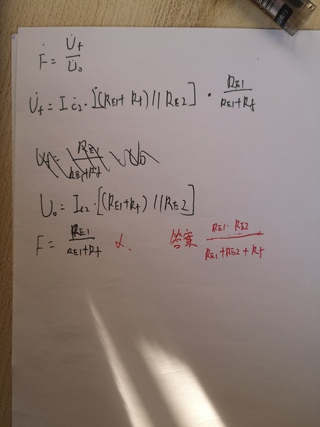 Ḟ = U̇f / U̇o
U̇f = İc2 · [(RE1 + Rf) // RE2] · RE1 / (RE1 + Rf)
Uo = Ic2 · [(RE1 + Rf) // RE2]
F = RE1 / (RE1 + Rf) 答案 RE1 · RE2 / (RE1 + RE2 + Rf)